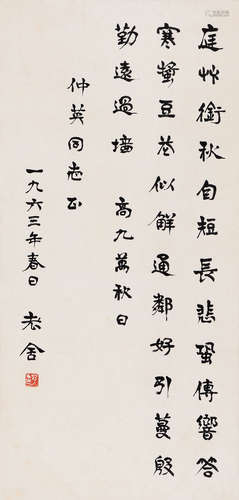 庭草銜秋自短長悲蛩傳響答
寒螿豆花似解通鄰好引蔓殷
勤遠過墻　高九萬秋日
仲英同志正
一九六三年春日　老舍